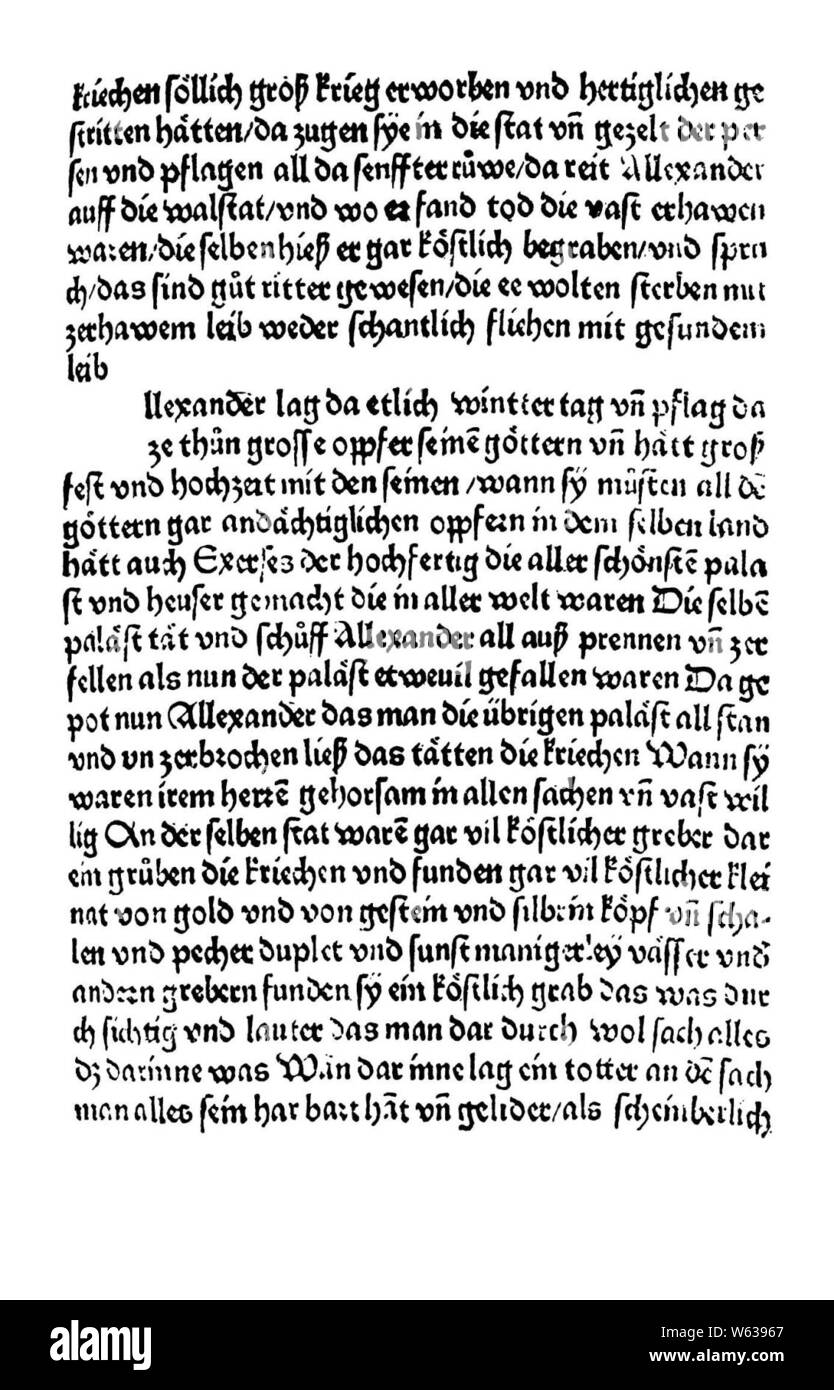 kriechen söllich groß krieg erworben vnd hertiglichen ge
stritten hätten/da zugen sÿe in die stat vn̄ gezelt der per
sen vnd pflagen all da senffter růwe/da reit Allexander
auff die walstat/vnd wo er fand tod die vast erhawen
waren/die selben hieß er gar köstlich begraben/vnd spra
ch/das sind gůt ritter gewesen/die ee wolten sterben mit
zerhawem leib weder schantlich fliehen mit gesundem
leib
llexander lag da etlich wintter tag vn̄ pflag da
ze thůn grosse opfer seinē göttern vn̄ hätt groß
fest vnd hochzeit mit den seinen /wann sÿ můsten all dē
göttern gar andächtiglichen opffern in dem selben land
hätt auch Exerses der hochfertig die aller schönstē pala
st vnd heuser gemacht die in aller welt waren Die selbē
paläst tät vnd schůff Allexander all auß prennen vn̄ zer
fellen als nun der paläst etweuil gefallen waren Da ge
pot nun Allexander das man die übrigen paläst all stan
vnd vn zerbrochen ließ das tätten die kriechen Wann sÿ
waren irem herrē gehorsam in allen sachen vn̄ vast wil
lig An der selben stat warē gar vil köstlicher greber dar
ein grůben die kriechen vnd funden gar vil köstlicher klei
nat von gold vnd von gestein vnd silberin köpf vn̄ scha-
len vnd pecher duplet vnd sunst manigerleÿ vässer vnd
andern grebern funden sÿ ein köstlich grab das was dur
ch sichtig vnd lauter das man dar durch wol sach alles
dz darinne was Wan dar inne lag ein totter an dē sach
man alles sein har bart hāt vn̄ gelider/als scheinberlich
alamy
Image ID: W63967
www.alamy.com